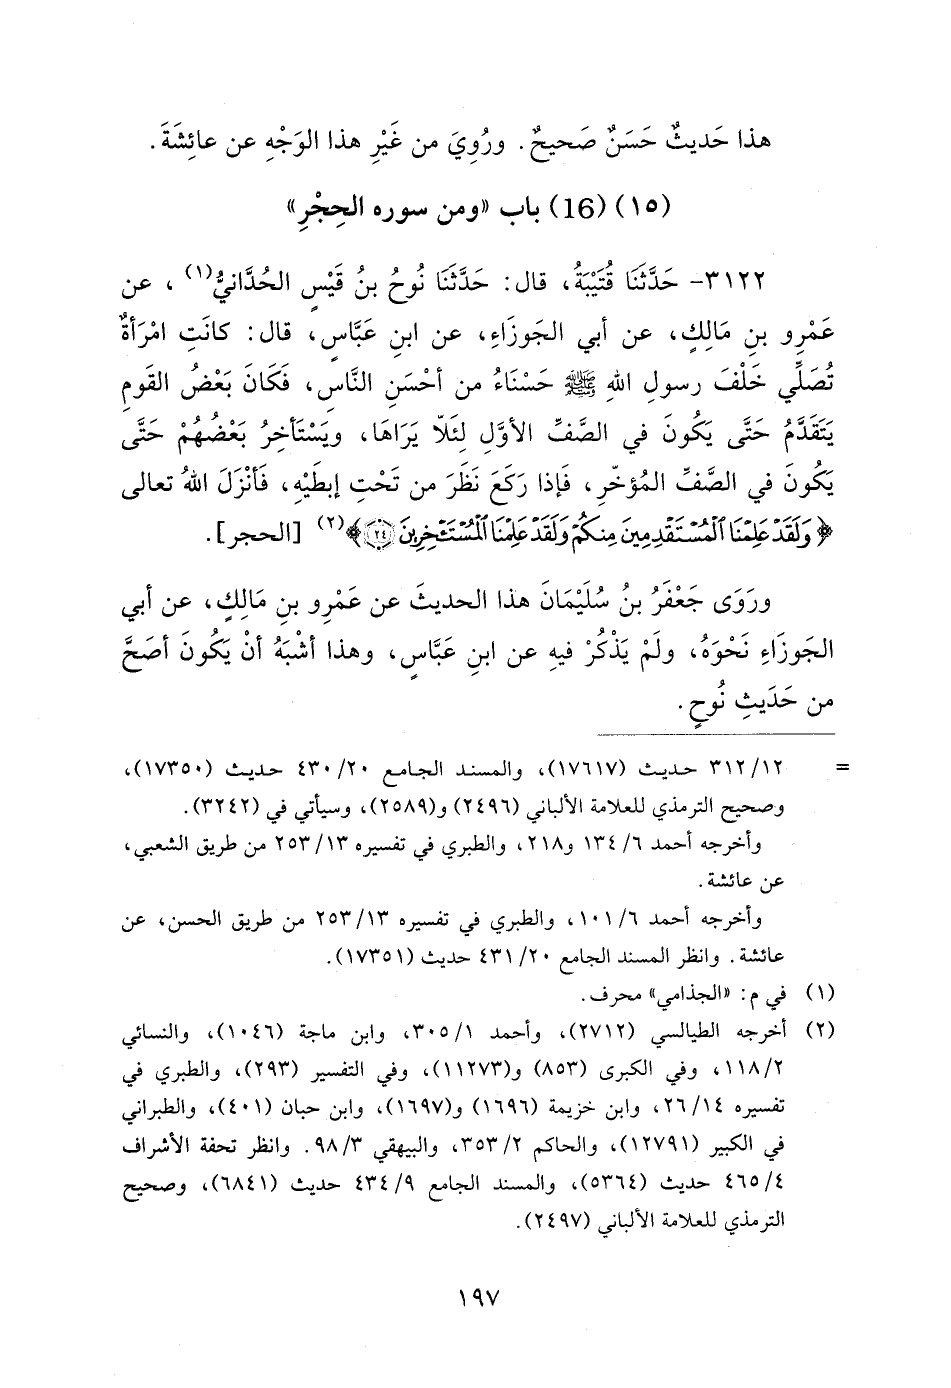 هذا حَديثٌ حَسَنٌ صَحيحٌ. ورُوِيَ من غَيْرِ هذا الوَجْهِ عن عائِشَةَ.
(١٥) (16) باب «ومن سوره الحِجْرِ»
٣١٢٢- حَدَّثَنَا قُتَيْبَةُ، قال: حَدَّثَنَا نُوحُ بنُ قَيْسٍ الحُدَّانيُّ(١)، عن
عَمْرِو بنِ مَالِكٍ، عن أبي الجَوزَاءِ، عن ابنِ عَبَّاسٍ، قال: كانَتِ امْرَأةٌ
تُصَلِّي خَلْفَ رسولِ اللهِ ﷺ حَسْنَاءُ من أحْسَنِ النَّاسِ، فَكَانَ بَعْضُ القَومِ
يَتَقَدَّمُ حَتَّى يَكُونَ في الصَّفِّ الأوَّلِ لِئَلاّ يَرَاهَا، ويَسْتَأخِرُ بَعْضُهُمْ حَتَّى
يَكُونَ في الصَّفِّ المُؤخّرِ، فَإذا رَكَعَ نَظَرَ من تَحْتِ إبطَيْهِ، فَأنْزَلَ اللهُ تعالى
﴿وَلَقَدْ عَلِمْنَا ٱلْمُسْتَقْدِمِينَ مِنكُمْ وَلَقَدْ عَلِمْنَا ٱلْمُسْتَـْٔخِرِينَ ۝٢٤﴾(٢) [الحجر].
ورَوَى جَعْفَرُ بنُ سُلَيْمَانَ هذا الحديثَ عن عَمْرِو بنِ مَالِكٍ، عن أبي
الجَوزَاءِ نَحْوَهُ، ولَمْ يَذْكُرْ فيهِ عن ابنِ عَبَّاسٍ، وهذا أشْبَهُ أنْ يَكُونَ أصَحَّ
من حَدَيثِ نُوحٍ.
= ٣١٢/١٢ حديث (١٧٦١٧)، والمسند الجامع ٤٣٠/٢٠ حديث (١٧٣٥٠)،
وصحيح الترمذي للعلامة الألباني (٢٤٩٦) و(٢٥٨٩)، وسيأتي في (٣٢٤٢).
وأخرجه أحمد ٦/ ١٣٤ و٢١٨، والطبري في تفسيره ٢٥٣/١٣ من طريق الشعبي،
عن عائشة.
وأخرجه أحمد ١٠١/٦، والطبري في تفسيره ٢٥٣/١٣ من طريق الحسن، عن
عائشة. وانظر المسند الجامع ٤٣١/٢٠ حديث (١٧٣٥١).
(١) في م: «الجذامي» محرف.
(٢) أخرجه الطيالسي (٢٧١٢)، وأحمد ٣٠٥/١، وابن ماجة (١٠٤٦)، والنسائي
١١٨/٢، وفي الكبرى (٨٥٣) و(١١٢٧٣)، وفي التفسير (٢٩٣)، والطبري في
تفسيره ٢٦/١٤، وابن خزيمة (١٦٩٦) و(١٦٩٧)، وابن حبان (٤٠١)، والطبراني
في الكبير (١٢٧٩١)، والحاكم ٣٥٣/٢، والبيهقي ٩٨/٣. وانظر تحفة الأشراف
٤٦٥/٤ حديث (٥٣٦٤)، والمسند الجامع ٤٣٤/٩ حديث (٦٨٤١)، وصحيح
الترمذي للعلامة الألباني (٢٤٩٧).
١٩٧